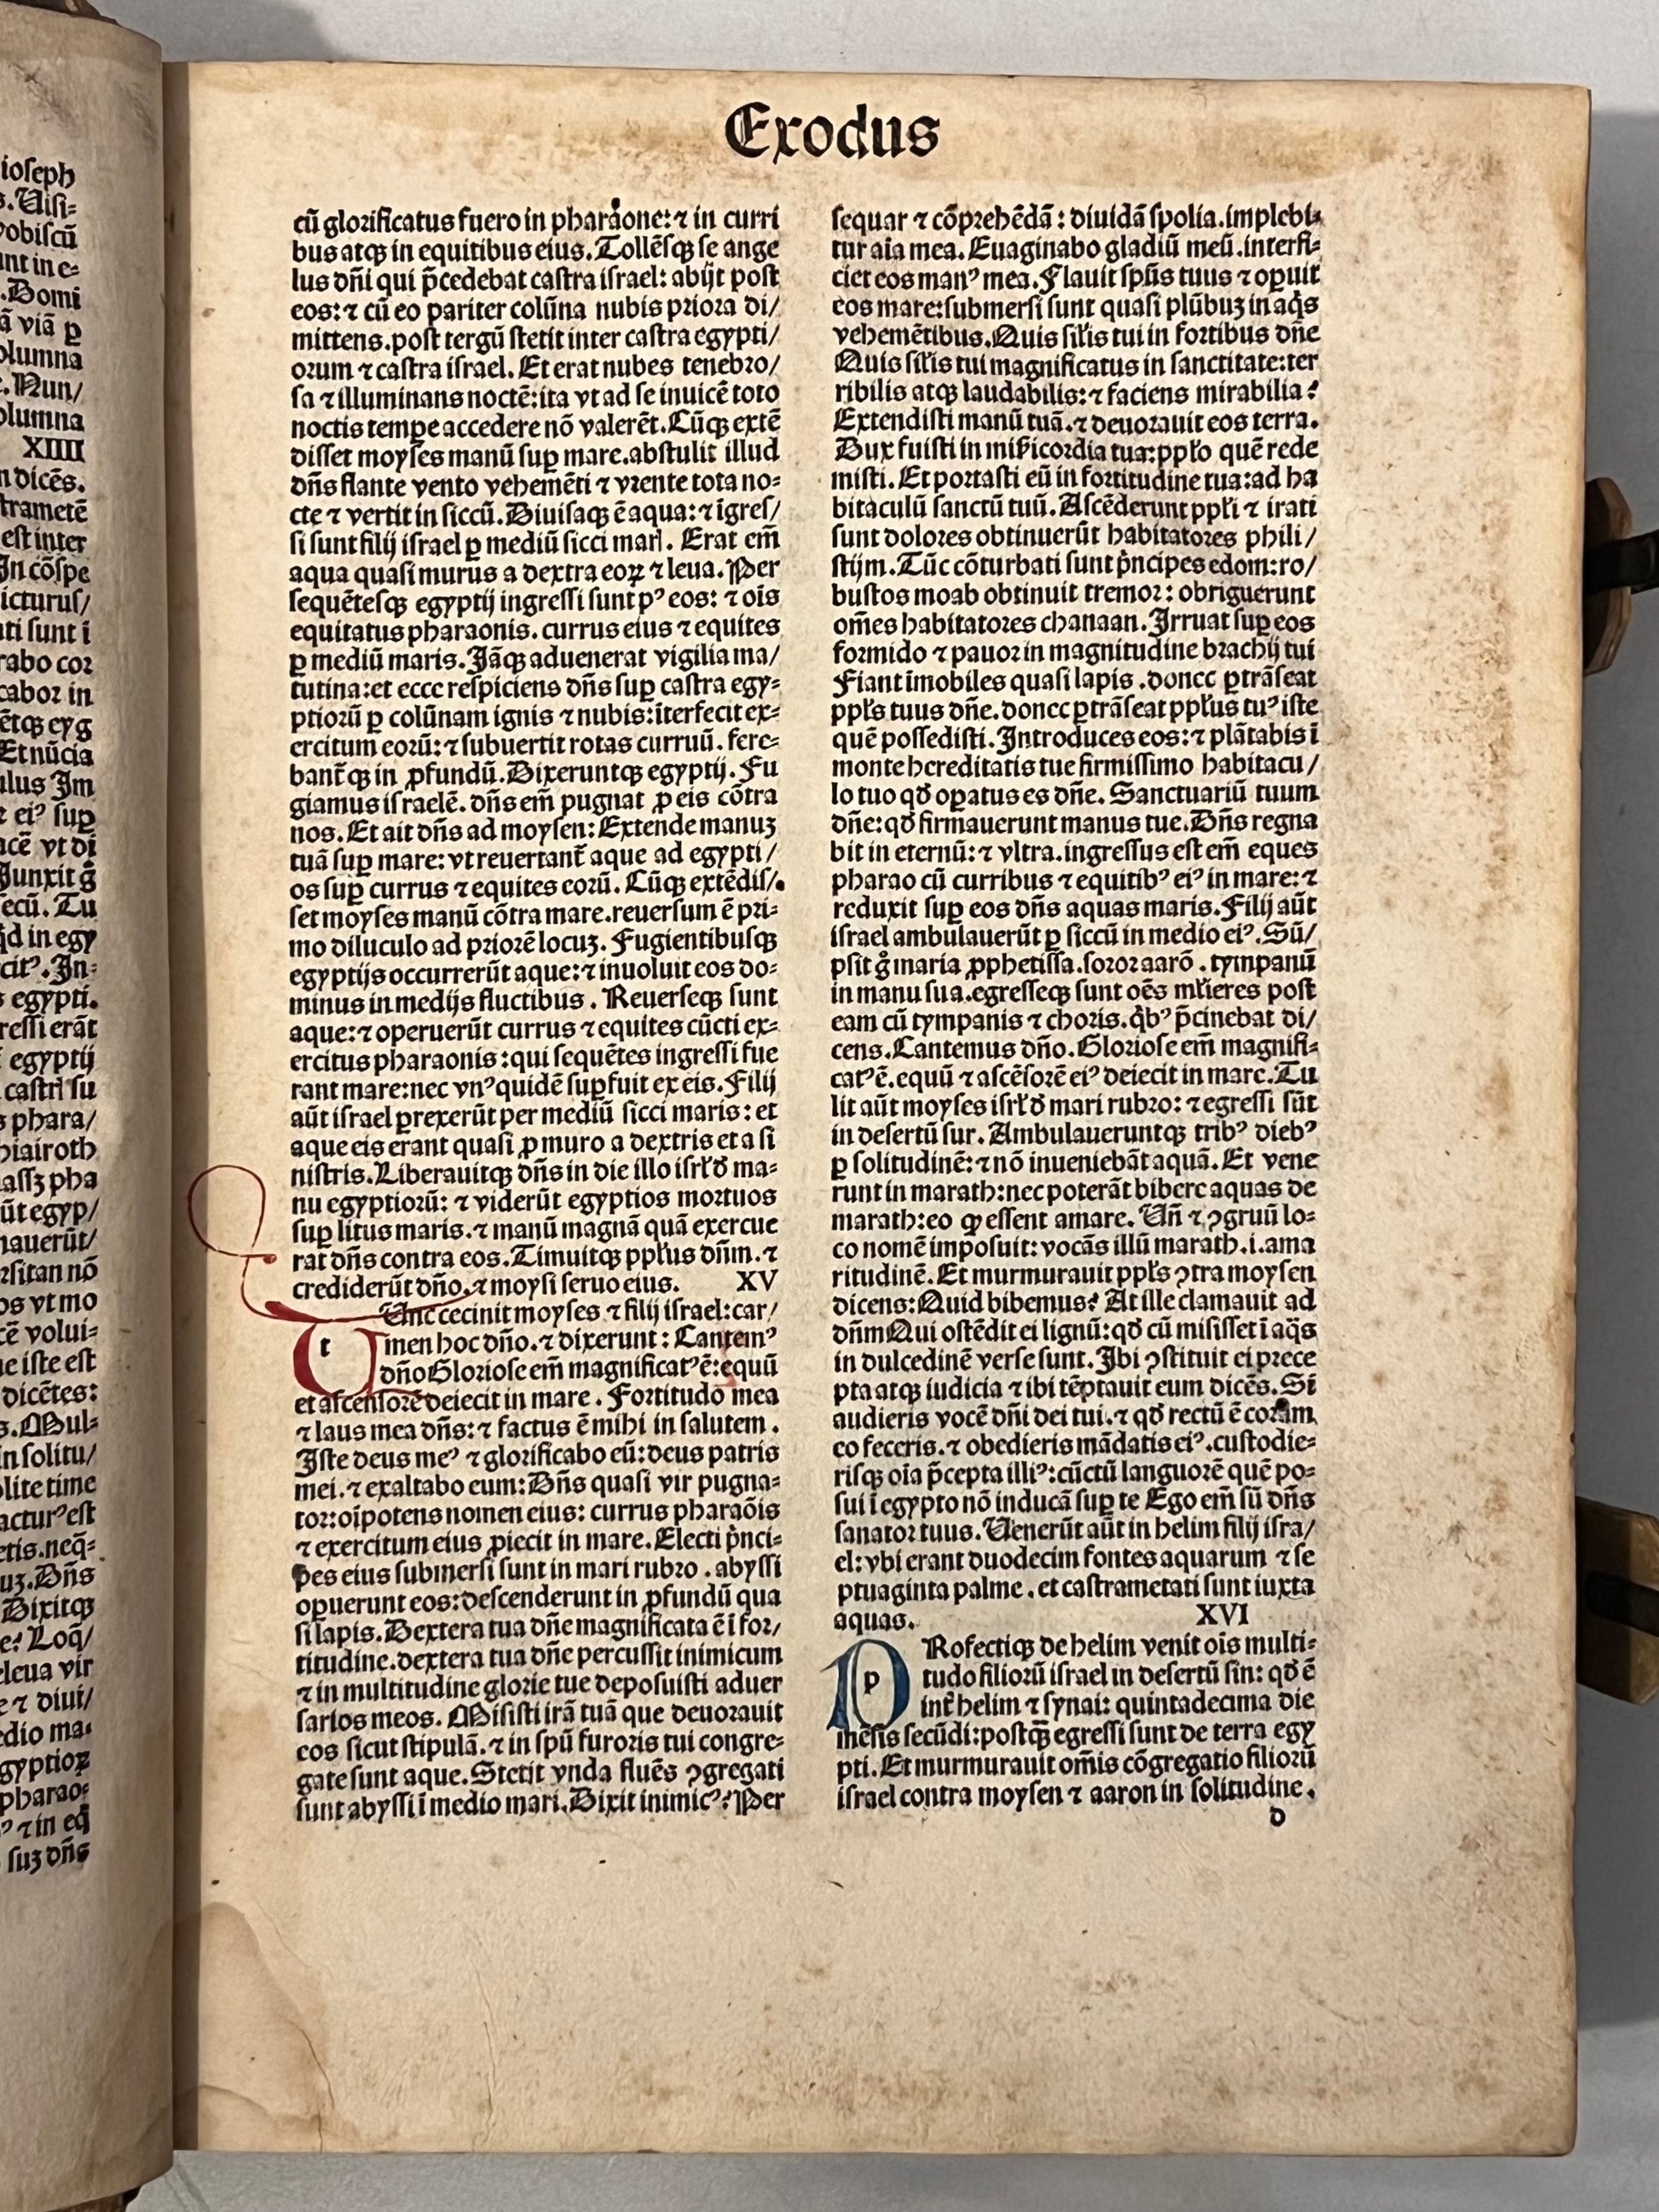 ioseph
s. Uisi⸗
vobiscū
unt in e⸗
. Domi
ā viā ꝑ
olumna
e. Nun/
olumna
XIIII
n dicēs.
trametē
est inter
In cōspe
icturus/
ati sunt ī
rabo cor
cabor in
ētqꝫ eyg
Et nūcia
ulus Im
ei⁹ suꝑ
acē vt di
Junxit g̊
secū. Tu
qd in egy
cit⁹. In⸗
s egypti.
ressi erāt
egyptij
castrl su
s phara/
hiairoth
assꝫ pha
ūt egyp/
mauerūt/
rsitan nō
os vt mo
cē volui⸗
e iste est
dicētes:
s. Mul⸗
in solitu/
lite time
actur⁹ est
etis. neq̄⸗
uꝫ. Dn̄s
Dixitqꝫ
e? Loq̄/
leua vir
e ⁊ diui/
edio ma⸗
gyptioꝝ
pharao⸗
⁹ ⁊ in eq̄
suꝫ dn̄s
Exodus
cū glorificatus fuero in pharaone: ⁊ in curri
bus atqꝫ in equitibus eius. Tollēsqꝫ se ange
lus dn̄i qui p̄cedebat castra israel: abijt post
eos: ⁊ cū eo pariter colūna nubis priora di/
mittens. post tergū stetit inter castra egypti/
orum ⁊ castra israel. Et erat nubes tenebro/
sa ⁊ illuminans noctē: ita vt ad se inuicē toto
noctis tempe accedere nō valerēt. Cūqꝫ extē
disset moyses manū suꝑ mare. abstulit illud
dn̄s flante vento vehemēti ⁊ vrente tota no⸗
cte ⁊ vertit in siccū. Diuisaqꝫ ē aqua: ⁊ īgres/
si sunt filij israel ꝑ mediū sicci marl. Erat em̄
aqua quasi murus a dextra eoꝝ ⁊ leua. Per
sequētesqꝫ egyptij ingressi sunt p⁹ eos: ⁊ oīs
equitatus pharaonis. currus eius ⁊ equites
ꝑ mediū maris. Jāqꝫ aduenerat vigilia ma/
tutina: et ecce respiciens dn̄s suꝑ castra egy⸗
ptiorū ꝑ colūnam ignis ⁊ nubis: īterfecit ex⸗
ercitum eorū: ⁊ subuertit rotas curruū. fere⸗
bant̄qꝫ in ꝓfundū. Dixeruntqꝫ egyptij. Fu
giamus israelē. dn̄s em̄ pugnat ꝓ eis cōtra
nos. Et ait dn̄s ad moysen: Extende manuꝫ
tuā suꝑ mare: vt reuertant̄ aque ad egypti/
os suꝑ currus ⁊ equites eorū. Cūqꝫ extēdis/
set moyses manū cōtra mare. reuersum ē pri⸗
mo diluculo ad priorē locuꝫ. Fugientibusqꝫ
egyptijs occurrerūt aque: ⁊ inuoluit eos do⸗
minus in medijs fluctibus. Reuerseqꝫ sunt
aque: ⁊ operuerūt currus ⁊ equites cūcti ex⸗
ercitus pharaonis: qui sequētes ingressi fue
rant mare: nec vn⁹ quidē suꝑfuit ex eis. Filij
aūt israel ꝑrexerūt per mediū sicci maris: et
aque eis erant quasi ꝓ muro a dextris et a si
nistris. Liberauitqꝫ dn̄s in die illo isrł’ d̄ ma⸗
nu egyptiorū: ⁊ viderūt egyptios mortuos
suꝑ litus maris. ⁊ manū magnā quā exercue
rat dn̄s contra eos. Timuitqꝫ ppłus dn̄m. ⁊
crediderūt dn̄o. ⁊ moysi seruo eius. XV
t Unc cecinit moyses ⁊ filij israel: car/
men hoc dn̄o. ⁊ dixerunt: Cantem⁹
dn̄o Gloriose em̄ magnificat⁹ ē: equū
et ascensorē deiecit in mare. Fortitudo mea
⁊ laus mea dn̄s: ⁊ factus ē mihi in salutem.
Iste deus me⁹ ⁊ glorificabo eū: deus patris
mei. ⁊ exaltabo eum: Dn̄s quasi vir pugna⸗
tor: oīpotens nomen eius: currus pharaōis
⁊ exercitum eius ꝓiecit in mare. Electi p̊nci⸗
pes eius submersi sunt in mari rubro. abyssi
opuerunt eos: descenderunt in ꝓfundū qua
si lapis. Dextera tua dn̄e magnificata ē ī for/
titudine. dextera tua dn̄e percussit inimicum
⁊ in multitudine glorie tue deposuisti aduer
sarios meos. Misisti irā tuā que deuorauit
eos sicut stipulā. ⁊ in spū furoris tui congre⸗
gate sunt aque. Stetit vnda fluēs ꝯgregati
sunt abyssi ī medio mari. Dixit inimic⁹: Per
sequar ⁊ cōprehēdā: diuidā spolia. implebi⸗
tur aīa mea. Euaginabo gladiū meū. interfi⸗
ciet eos man⁹ mea. Flauit spūs tuus ⁊ oꝑuit
eos mare: submersi sunt quasi plūbuꝫ in aq̄s
vehemētibus. Quis siłis tui in fortibus dn̄e
Quis siłis tui magnificatus in sanctitate: ter
ribilis atqꝫ laudabilis: ⁊ faciens mirabilia?
Extendisti manū tuā. ⁊ deuorauit eos terra.
Dux fuisti in mīẜicordia tua: ppło quē rede
misti. Et portasti eū in fortitudine tua: ad ha
bitaculū sanctū tuū. Ascēderunt ppłi ⁊ irati
sunt dolores obtinuerūt habitatores phili/
stijm. Tūc cōturbati sunt p̊ncipes edom: ro/
bustos moab obtinuit tremor: obriguerunt
om̄es habitatores chanaan. Irruat suꝑ eos
formido ⁊ pauor in magnitudine brachij tui
Fiant īmobiles quasi lapis. donec ꝑtrāseat
ppłs tuus dn̄e. donec ꝑtrāseat ppłus tu⁹ iste
quē possedisti. Introduces eos: ⁊ plātabis ī
monte hereditatis tue firmissimo habitacu/
lo tuo qd̄ oꝑatus es dn̄e. Sanctuariū tuum
dn̄e: qd̄ firmauerunt manus tue. Dn̄s regna
bit in eternū: ⁊ vltra. ingressus est em̄ eques
pharao cū curribus ⁊ equitib⁹ ei⁹ in mare: ⁊
reduxit suꝑ eos dn̄s aquas maris. Filij aūt
israel ambulauerūt ꝑ siccū in medio ei⁹. Sū/
psit g̊ maria ꝓphetissa. soror aarō. tympanū
in manu sua. egresseqꝫ sunt oēs młieres post
eam cū tympanis ⁊ choris. q̊b⁹ p̄cinebat di/
cens. Cantemus dn̄o. Gloriose em̄ magnifi⸗
cat⁹ ē. equū ⁊ ascēsorē ei⁹ deiecit in mare. Tu
lit aūt moyses isrł d̄ mari rubro: ⁊ egressi sūt
in desertū sur. Ambulaueruntqꝫ trib⁹ dieb⁹
ꝑ solitudinē: ⁊ nō inueniebāt aquā. Et vene
runt in marath: nec poterāt bibere aquas de
marath: eo ꝙ essent amare. Un̄ ⁊ ꝯgruū lo⸗
co nomē imposuit: vocās illū marath. i. ama
ritudinē. Et murmurauit ppłs ꝯtra moysen
dicens: Quid bibemus? At ille clamauit ad
dn̄m Qui ostēdit ei lignū: qd̄ cū misisset ī aq̄s
in dulcedinē verse sunt. Ibi ꝯstituit ei prece
pta atqꝫ iudicia ⁊ ibi tēptauit eum dicēs. Si
audieris vocē dn̄i dei tui. ⁊ qd̄ rectū ē coram
eo feceris. ⁊ obedieris mādatis ei⁹. custodie⸗
risqꝫ oīa p̄cepta illi⁹: cūctū languorē quē po⸗
sui ī egypto nō inducā suꝑ te Ego em̄ sū dn̄s
sanator tuus. Uenerūt aūt in helim filij isra/
el: vbi erant duodecim fontes aquarum ⁊ se
ptuaginta palme. et castrametati sunt iuxta
aquas. XVI
p Rofectiqꝫ de helim venit oīs multi⸗
tudo filiorū israel in desertū sin: qd̄ ē
int̄ helim ⁊ synai: quintadecima die
mēsis secūdi: postq̄ꝫ egressi sunt de terra egy
pti. Et murmurauit om̄is cōgregatio filiorū
israel contra moysen ⁊ aaron in solitudine.
d